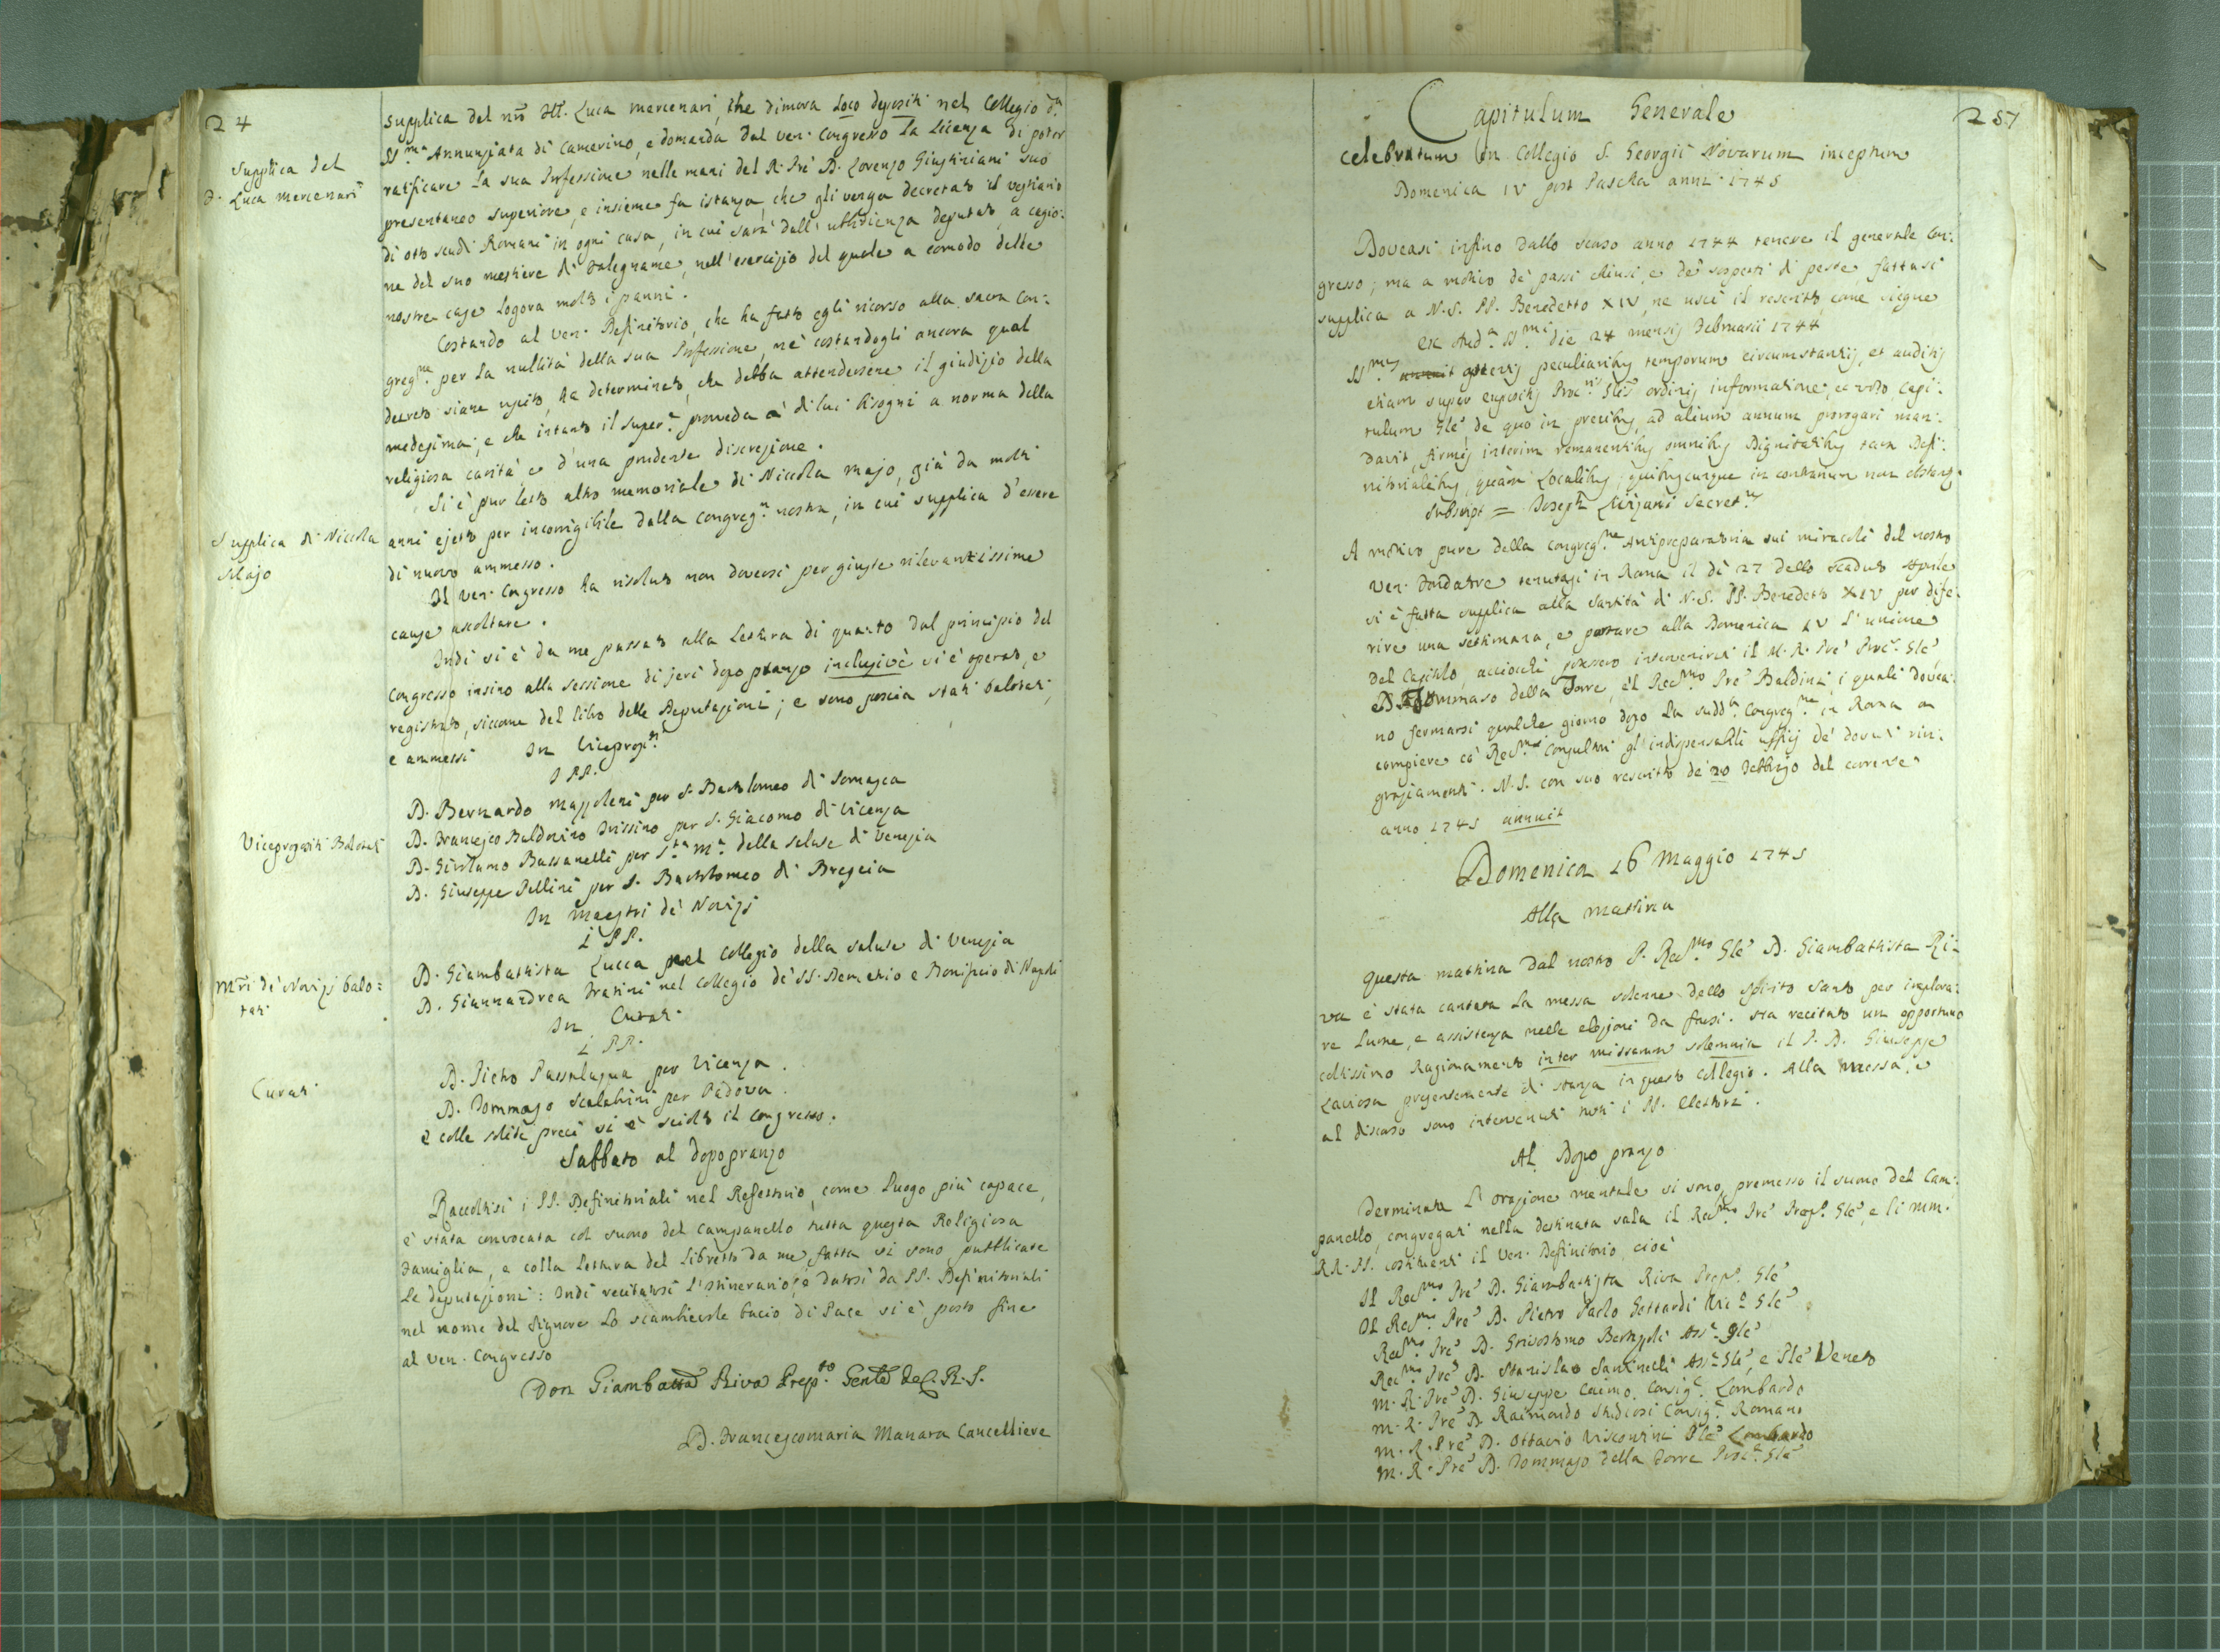 24
Supplica del
F. Luca Mercenari
supplica del nrō Ill. Luca Mercenari, che dimora Loco depositi nel Collegio d.a
SS.ma Annunziata di Camerino, e domanda dal Ven. Congresso la Licenza di poter
ratificare la sua Professione nelle mani del R. Pre D. Lorenzo Giustiniani suo
presentaneo superiore, e insieme fa istanza, che gli venga decretato il vestiario
di otto scudi Romani in ogni casa, in cui sarà dall'ubbidienza deputato, a cagio:
ne del suo mestiere di Falegname, nell'esercizio del quale a comodo delle
nostre case logora molto i panni.
Costando al Ven. Definitorio, che ha fatto egli ricorso alla sacra Con:
greg.ne per la nullità della sua Professione, nè costandogli ancora qual
decreto siane uscito, ha determinato, che debba attendersene il giudizio della
medesima; e che intanto il super.e proveda a' di lui bisogni a norma della
religiosa carità e d'una prudente discrezione.
Supplica di Niccola
Majo
Si è pur letto altro memoriale di Niccola Majo, già da molti
anni ejetto per incorrigibile dalla Congreg.e nostra, in cui supplica d'essere
di nuovo ammesso.
Il Ven. Congresso ha risoluto non doversi per giuste rilevantissime
cause ascoltare.
Indi si è da me passato alla Lettura di quanto dal principio del
Congresso insino alla sessione di jeri dopo pranzo inclusivè si è operato, e
registrato, siccome del libro delle Deputazioni; e sono poscia stati balotati,
e ammessi In Viceprop.ti
I PP.
Viceprepositi Balotati
D. Bernardo Mazzoleni per S. Bartolomeo di Somasca
D. Francesco Baldovino Trissino per S. Giacomo di Vicenza
D. Girolamo Bassanelli per S.ta M.a della Salute di Venezia
D. Giuseppe Pellini per S. Bartolomeo di Brescia
In Maestri de' Novizj
i PP.
Mri de' Novizj balo:
tati
D. Giambattista Lucca nel Collegio della Salute di Venezia
D. Giannandrea Fratini nel Collegio de' SS. Demetrio e Bonifacio di Napoli
In Curati
i PP.
Curati
D. Pietro Passalaqua per Vicenza.
D. Tommaso Scalabrini per Padova.
e colle solite preci si è sciolto il Congresso.
Sabbato al dopopranzo
Raccoltisi i PP. Definitoriali nel Refettorio, come Luogo più capace,
è stata convocata col suono del Campanello tutta questa Religiosa
Famiglia, e colla lettura del libretto da me fatta si sono pubblicate
le deputazioni: Indi recitatosi l'Itinerario, e datosi da PP. Definitoriali
nel nome del Signore lo scambievole bacio di Pace si è posto fine
al Ven. Congresso
Don Giambatta Riva Prep.to Genle de C. R. S.
D. Francescomaria Manara Cancelliere
257
Capitulum Generale
celebratum in Collegio S. Georgii Novarum inceptum
Domenica IV post Pascha anni 1745
Doveasi infino dallo scorso anno 1744 tenere il generale Con:
gresso; ma a motivo de' passi chiusi, e de' sospetti di peste, fattasi
supplica a N.S. PP. Benedetto XIV, ne uscì il rescritto, come siegue
Ex Aud.a SS.mi die 24 mensis Februarii 1744
SS.mus attentis peculiaribus temporum circumstantiis, et auditis
etiam super expositis Proc.ris Glis ordinis informatione, et voto Capi:
tulum Gle de quo in precibus, ad alium annum prorogari man:
davit, firmis interim remanentibus omnibus Dignitatibus tam Defi:
nitorialibus, quàm Localibus; quibuscunque in contrarium non obstantibus.
Subscript = Joseph Livizani Secret.us
A motivo pure della Congreg.ne Antipreparatoria sui miracoli del nostro
Ven. Fondatore tenutasi in Roma il dì 27 dello scaduto Aprile
si è fatta supplica alla Santità di N.S. PP. Benedetto XIV per dife:
rire una settimana, e portare alla Domenica IV l'unione
del Capitolo, acciocchè potessero intervenirvi il M. R. Pre Proc.r Gle
D. Tommaso della Torre, e'l Rev.mo Pre Baldini, i quali dovea:
no fermarsi qualche giorno dopo la sudd.a Congreg.ne in Roma a
compiere co' Rev.mi Consultori gl'indispensabili uffizj de' dovuti rin:
graziamenti. N.S. con suo rescritto de' 20 Febbrajo del corrente
anno 1745 annuit
Domenica 16 Maggio 1745
Alla mattina
Questa mattina dal nostro P. Rev.mo Gle D. Giambattista Ri:
va è stata cantata la messa solenne dello Spirito Santo per implora:
re lume, e assistenza nelle elezioni da farsi. Ha recitato un opportuno
coltissimo Ragionamento inter missarum solemnia il P. D. Giuseppe
Laviosa presentemente di stanza in questo Collegio. Alla messa, e
al discorso sono intervenuti tutti i PP. Elettori.
Al Dopo pranzo
Terminata l'orazione mentale si sono, premesso il suono del Cam:
panello, congregati nella destinata sala il Rev.mo Pre Prep.o Gle, e li MM.
RR. PP. costituenti il Ven. Definitorio, cioè
Il Rev.mo Pre D. Giambattista Riva Prep.o Gle
Il Rev.mo Pre D. Pietro Paolo Gottardi Vic.o Gle
Rev.mo Pre D. Grisostomo Bertazoli Ass.e Gle
Rev.mo Pre D. Stanislao Santinelli Ass.e Gle, e Ple Veneto
M. R. Pre D. Giuseppe Caimo Consig.e Lombardo
M. R. Pre D. Raimondo Studiosi Consig.e Romano
M. R. Pre D. Ottavio Visconti Ple Lombardo
M. R. Pre D. Tommaso della Torre Proc.e Gle